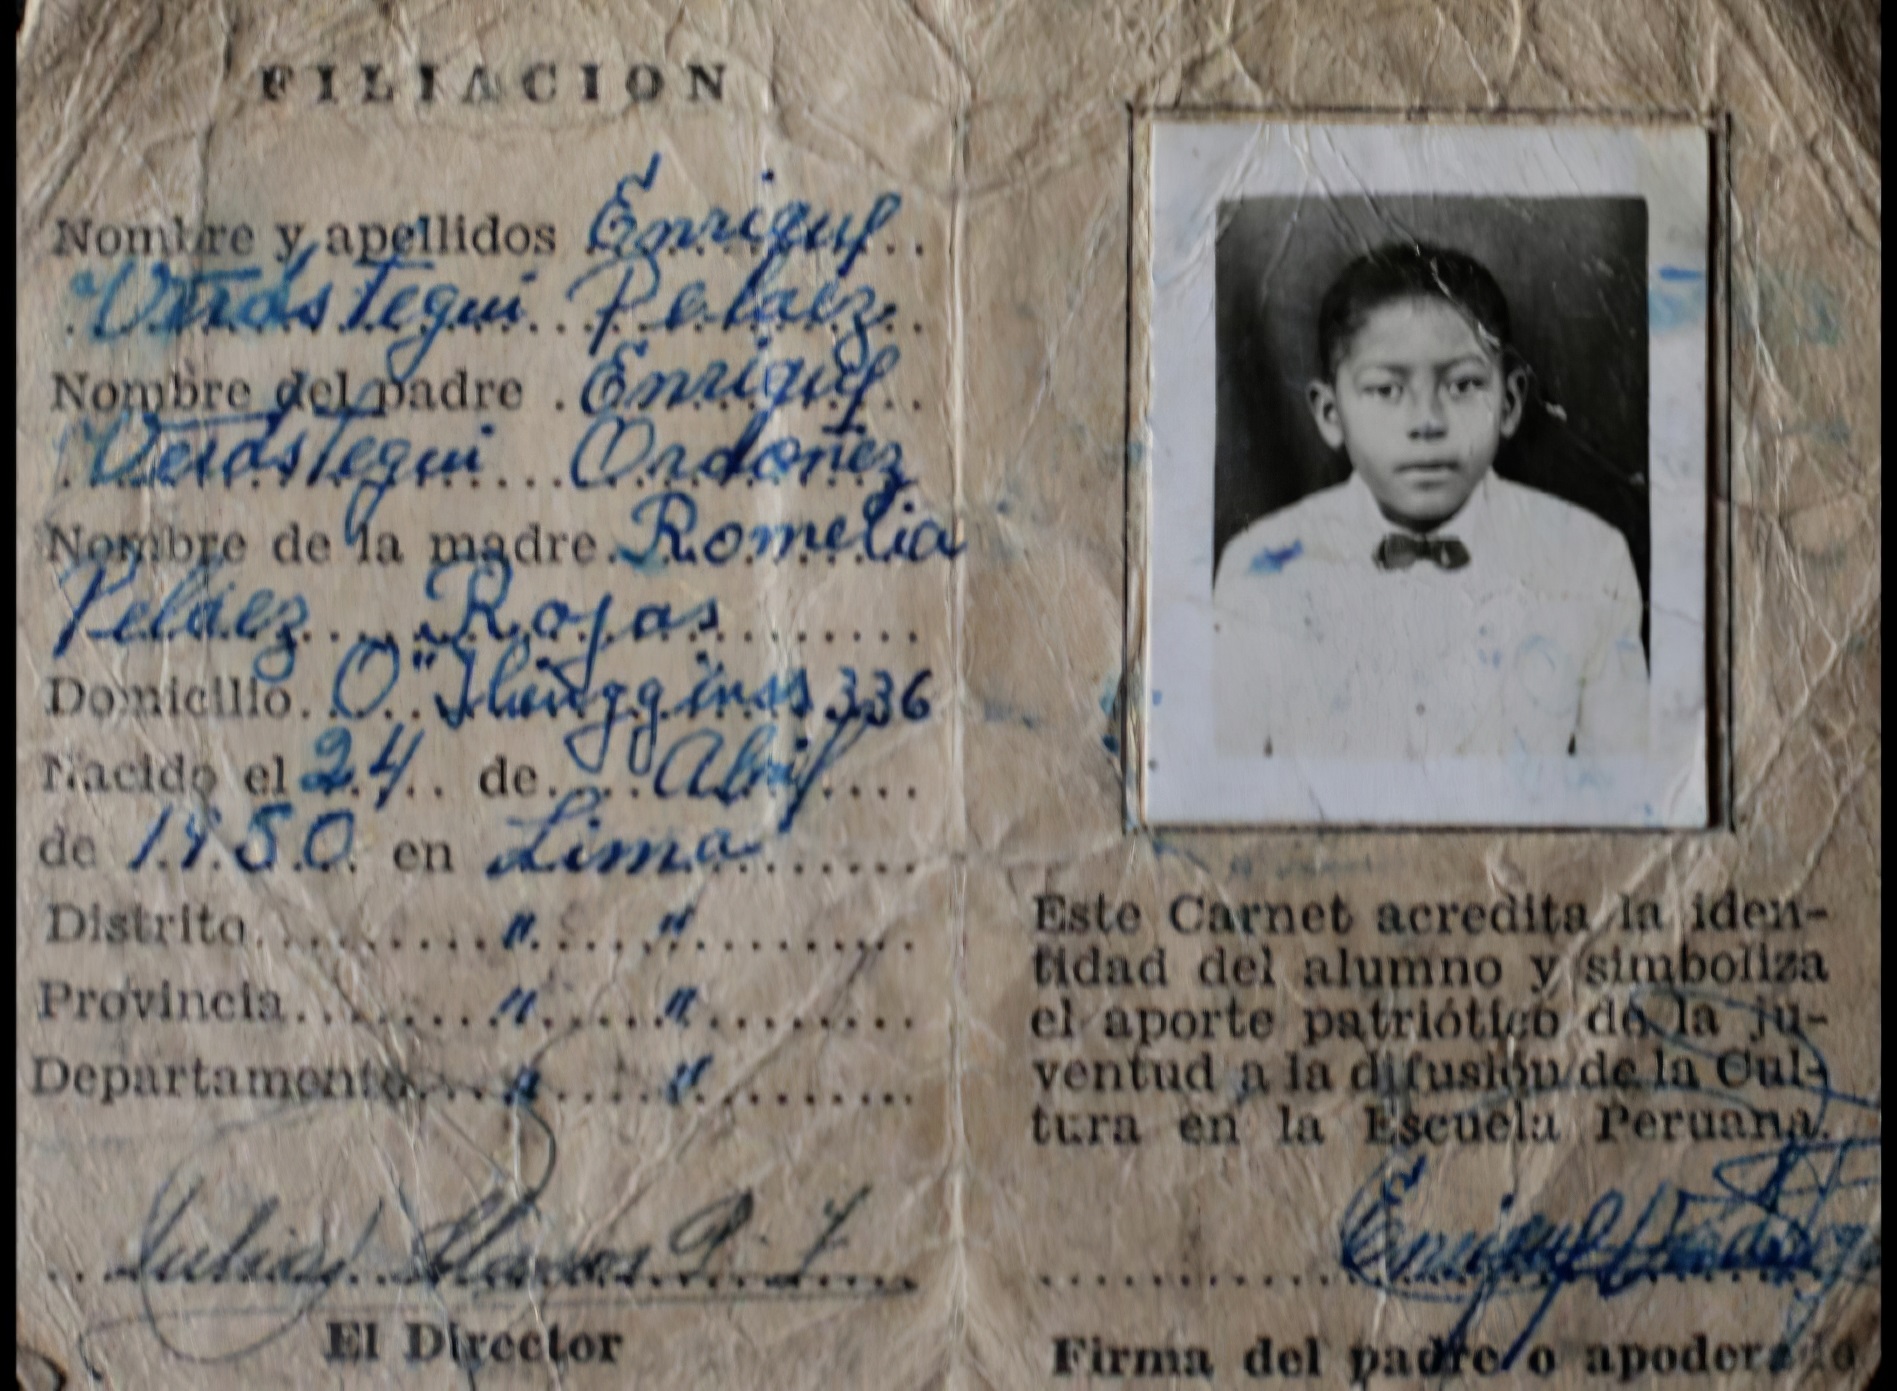 FILIACION
Nombre y apellidos Enrique
Verástegui Pelaez
Nombre del padre Enrique
Verástegui Ordoñez
Nombre de la madre Romelia
Peláez Rojas
Domicilio O"Huigginss 336
Nacido el 24 de Abril
de 1950 en Lima
Distrito " "
Provincia " "
Departamento " "
El Director
Este Carnet acredita la iden-
tidad del alumno y simboliza
el aporte patriótico de la ju-
ventud a la difusión de la Cul-
tura en la Escuela Peruana.
Enrique Verástegui
Firma del padre o apoderado